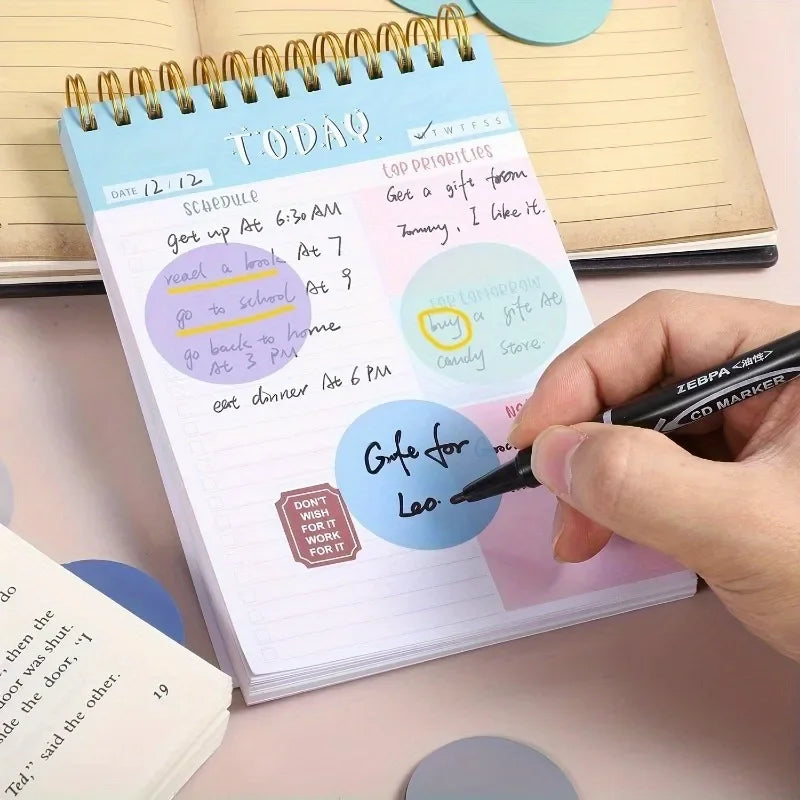 TODAY
T W T F S S
DATE 12/12
SCHEDULE
get up At 6:30 AM
read a book At 7
go to school At 9
go back to home
At 3 PM
eat dinner At 6 PM
TOP PRIORITIES
Get a gift from
Tommy, I like it.
FOR TOMORROW
buy a gift At
candy store.
NO
Gife for
Leo.
DON'T
WISH
FOR IT
WORK
FOR IT
ZEBPA <油性>
CD MARKER
do
, then the
door was shut.
side the door, "I
Ted," said the other.
19